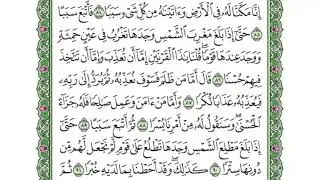 إِنَّا مَكَّنَّا لَهُۥ فِي ٱلْأَرْضِ وَءَاتَيْنَٰهُ مِن كُلِّ شَىْءٍ سَبَبًا ٨٤ فَأَتْبَعَ سَبَبًا
٨٥ حَتَّىٰٓ إِذَا بَلَغَ مَغْرِبَ ٱلشَّمْسِ وَجَدَهَا تَغْرُبُ فِي عَيْنٍ حَمِئَةٍ
وَوَجَدَ عِندَهَا قَوْمًا قُلْنَا يَٰذَا ٱلْقَرْنَيْنِ إِمَّآ أَن تُعَذِّبَ وَإِمَّآ أَن تَتَّخِذَ
فِيهِمْ حُسْنًا ٨٦ قَالَ أَمَّا مَن ظَلَمَ فَسَوْفَ نُعَذِّبُهُۥ ثُمَّ يُرَدُّ إِلَىٰ رَبِّهِۦ
فَيُعَذِّبُهُۥ عَذَابًا نُّكْرًا ٨٧ وَأَمَّا مَنْ ءَامَنَ وَعَمِلَ صَٰلِحًا فَلَهُۥ جَزَآءً
ٱلْحُسْنَىٰ وَسَنَقُولُ لَهُۥ مِنْ أَمْرِنَا يُسْرًا ٨٨ ثُمَّ أَتْبَعَ سَبَبًا ٨٩ حَتَّىٰٓ
إِذَا بَلَغَ مَطْلِعَ ٱلشَّمْسِ وَجَدَهَا تَطْلُعُ عَلَىٰ قَوْمٍ لَّمْ نَجْعَل لَّهُم مِّن
دُونِهَا سِتْرًا ٩٠ كَذَٰلِكَ وَقَدْ أَحَطْنَا بِمَا لَدَيْهِ خُبْرًا ٩١ ثُمَّ